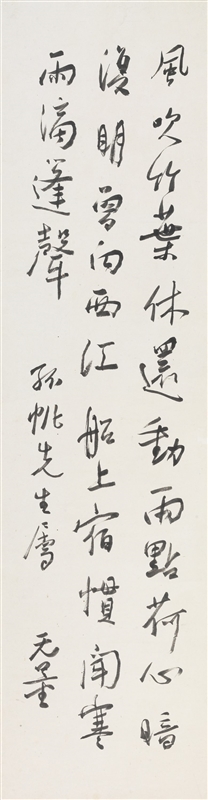 風吹竹葉休還動雨點荷心暗
復明曾向西江船上宿慣聞寒
雨滴篷聲
孤帆先生屬
无量